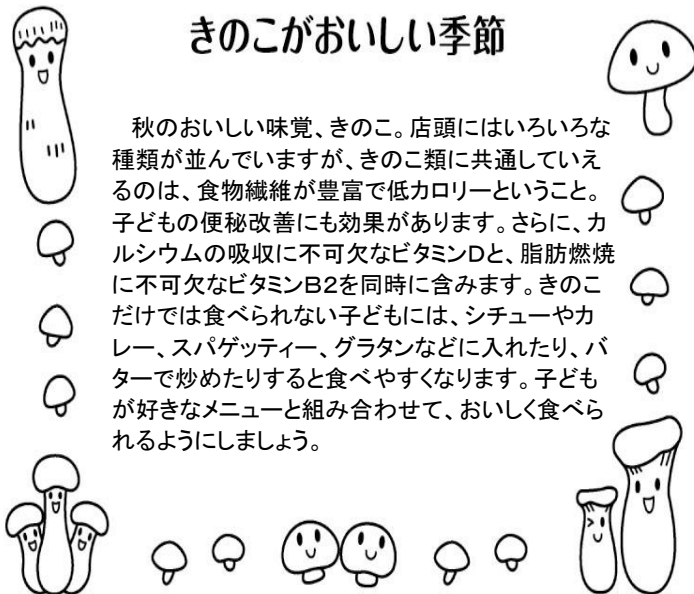 きのこがおいしい季節
秋のおいしい味覚、きのこ。店頭にはいろいろな
種類が並んでいますが、きのこ類に共通していえ
るのは、食物繊維が豊富で低カロリーということ。
子どもの便秘改善にも効果があります。さらに、カ
ルシウムの吸収に不可欠なビタミンDと、脂肪燃焼
に不可欠なビタミンB2を同時に含みます。きのこ
だけでは食べられない子どもには、シチューやカ
レー、スパゲッティー、グラタンなどに入れたり、バ
ターで炒めたりすると食べやすくなります。子ども
が好きなメニューと組み合わせて、おいしく食べら
れるようにしましょう。